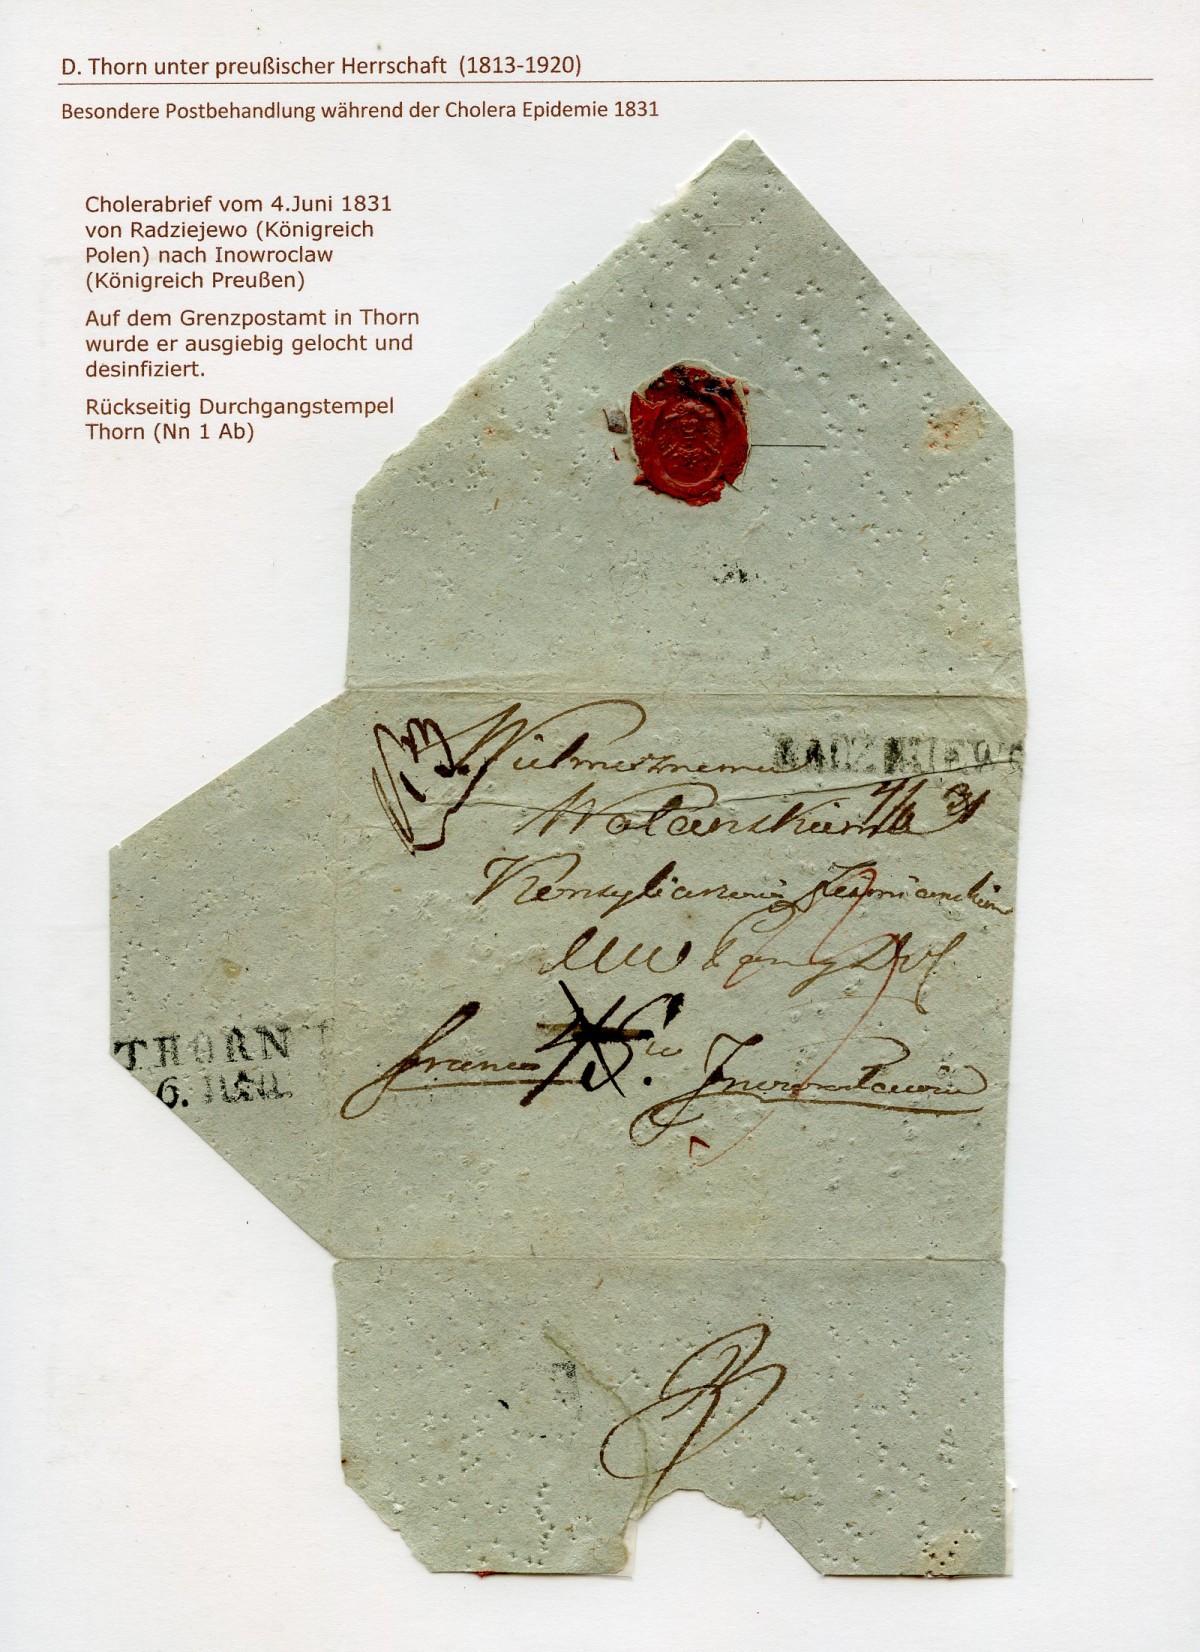 D. Thorn unter preußischer Herrschaft (1813-1920)
Besondere Postbehandlung während der Cholera Epidemie 1831
Cholerabrief vom 4.Juni 1831
von Radziejewo (Königreich
Polen) nach Inowroclaw
(Königreich Preußen)
Auf dem Grenzpostamt in Thorn
wurde er ausgiebig gelocht und
desinfiziert.
Rückseitig Durchgangstempel
Thorn (Nn 1 Ab)
RADZIEIEWO
Wielmożnemu
4/6 31
Wolanskiemu
THORN
6. IUNI.
franco